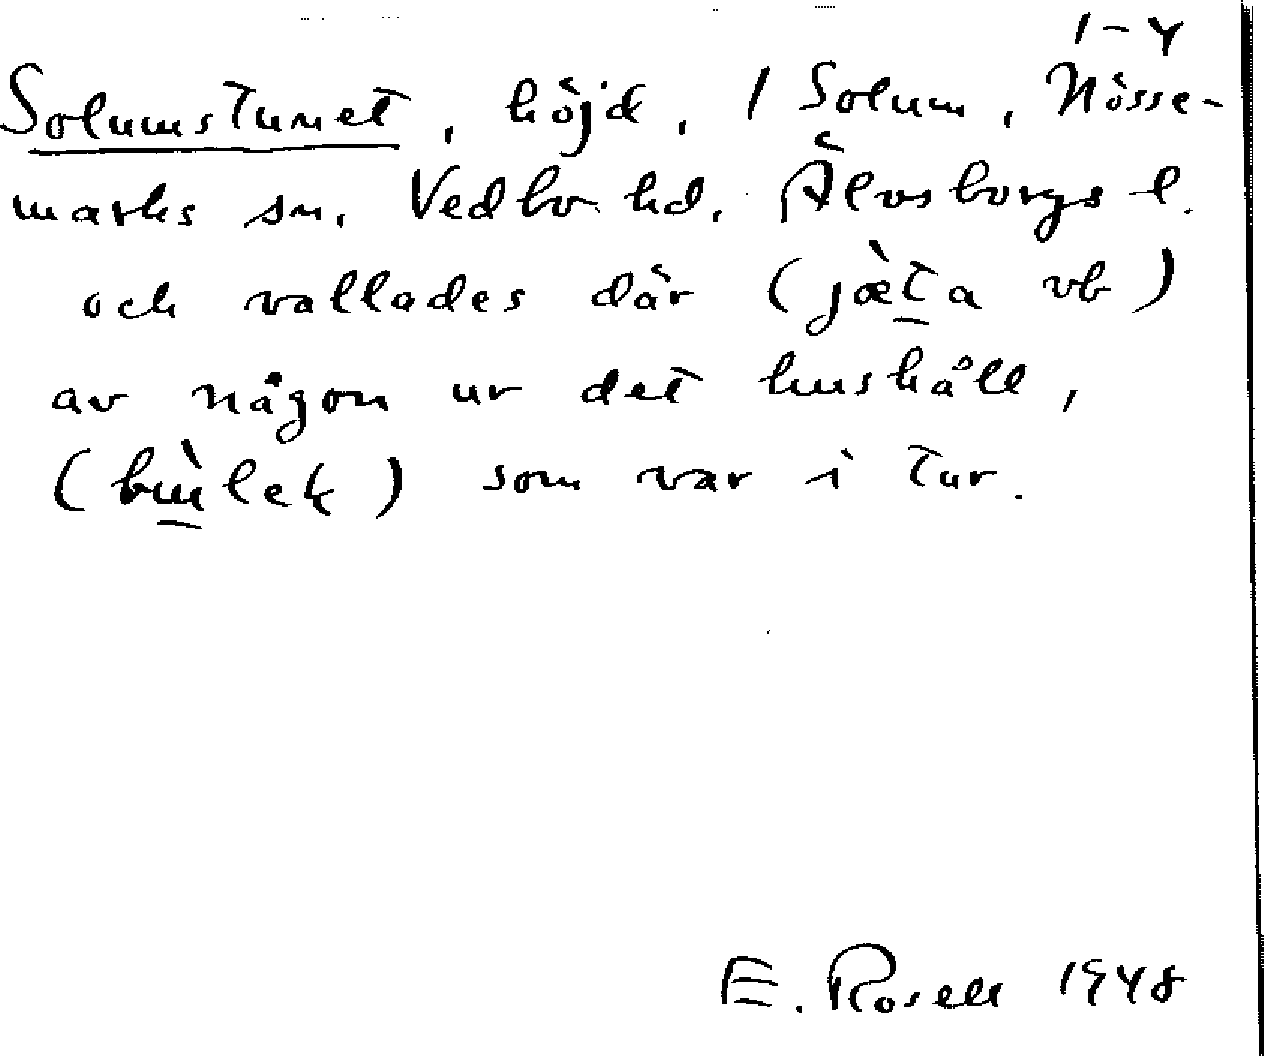 1-4
Solumstunet, höjd, 1 Solum, Nösse-
marks sn. Vedbo hd. Älvsborgs l.
och vallades där (jæ̀ta vb)
av någon ur det hushåll,
som var i tur.
E. Rosell 1948